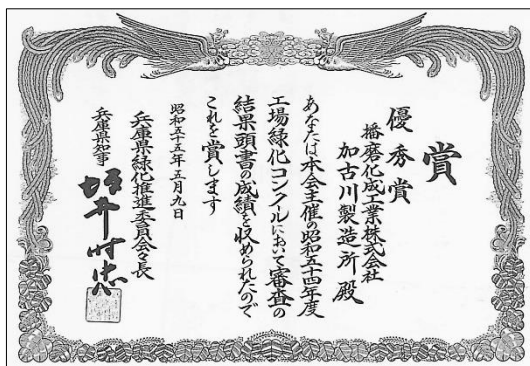 賞
優秀賞
播磨化成工業株式会社
加古川製造所殿
あなたは本会主催の昭和五十四年度
工場緑化コンクールにおいて審査の
結果頭書の成績を収められたので
これを賞します
昭和五十五年五月九日
兵庫県緑化推進委員会々長
兵庫県知事
坂井時忠